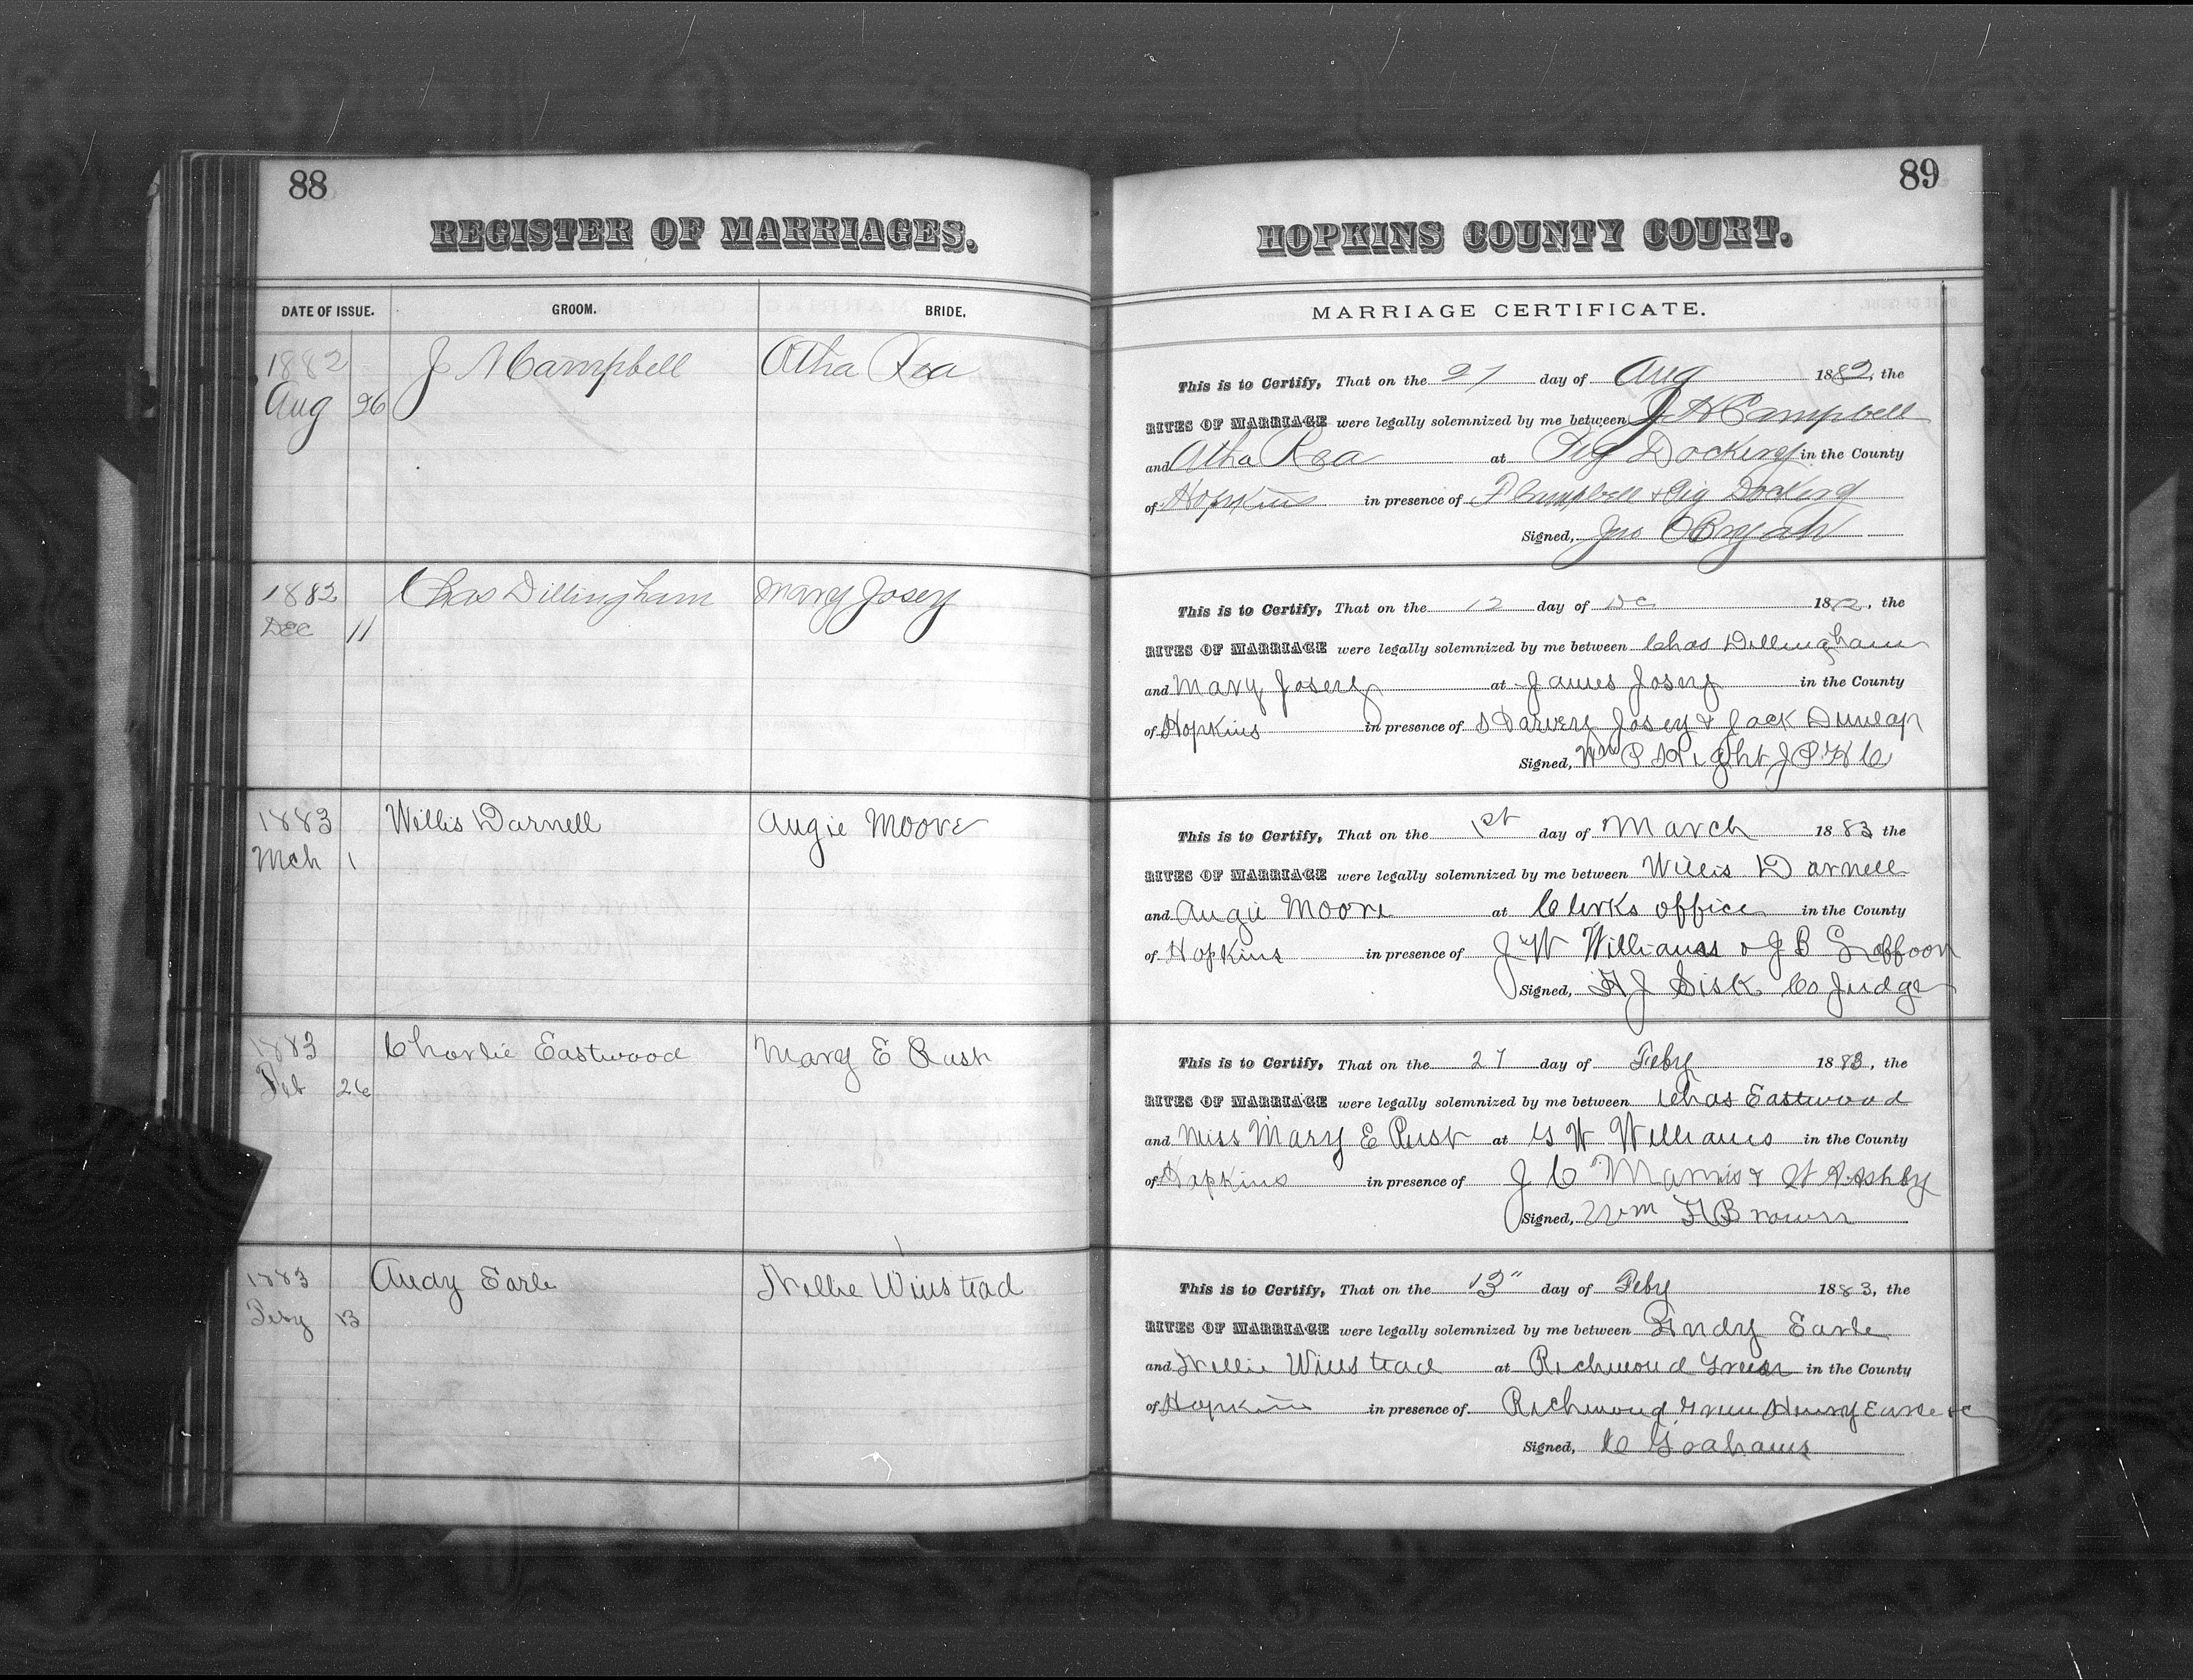 88
REGISTER OF MARRIAGES.
DATE OF ISSUE. GROOM. BRIDE.
1882 J H Campbell Atha Rea
Aug 26
1882 Chas Dillingham Mary Josey
Dec 11
1883 Willis Darnell Augie Moore
Mch 1
1883 Charlie Eastwood Mary E Rust
Feb 26
1883 Andy Earle Nellie Winstead
Feby 13
89
HOPKINS COUNTY COURT.
MARRIAGE CERTIFICATE.
This is to Certify, That on the 27 day of Aug 1882, the
RITES OF MARRIAGE were legally solemnized by me between J H Campbell
and Atha Rea at Dockery in the County
of Hopkins in presence of Campbell &
Signed, Jno O Bryan
This is to Certify, That on the 12 day of Dc 1882, the
RITES OF MARRIAGE were legally solemnized by me between Chas Dillingham
and Mary Josey at James Josey in the County
of Hopkins in presence of Josey & Jack Dunlap
Signed, Wm P J P H C
This is to Certify, That on the 1st day of March 1883 the
RITES OF MARRIAGE were legally solemnized by me between Willis Darnell
and Augie Moore at Clerks office in the County
of Hopkins in presence of J W Williams & J B Laffoon
Signed, A J Sisk Co Judge
This is to Certify, That on the 27 day of Feby 1883, the
RITES OF MARRIAGE were legally solemnized by me between Chas Eastwood
and Miss Mary E Rust at G W Williams in the County
of Hopkins in presence of J C & Ashby
Signed, Wm H Brown
This is to Certify, That on the 13" day of Feby 1883, the
RITES OF MARRIAGE were legally solemnized by me between Andy Earle
and Nellie Winstead at Richmond Green in the County
of Hopkins in presence of Richmond Green Henry Earle &c
Signed, Grahams